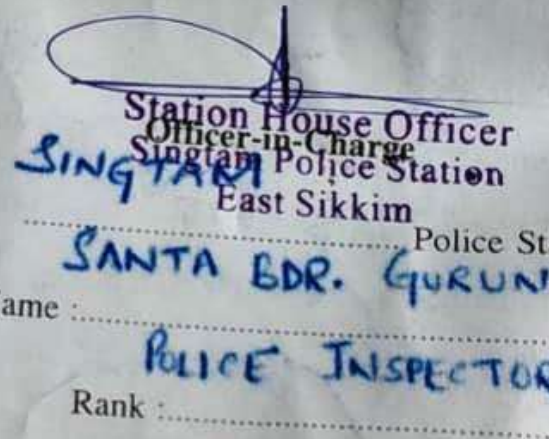 Station House Officer
Officer-in-Charge
Singtam Police Station
SINGTAM
East Sikkim
Police St
SANTA BDR. GURUN
ame :
POLICE INSPECTOR
Rank :